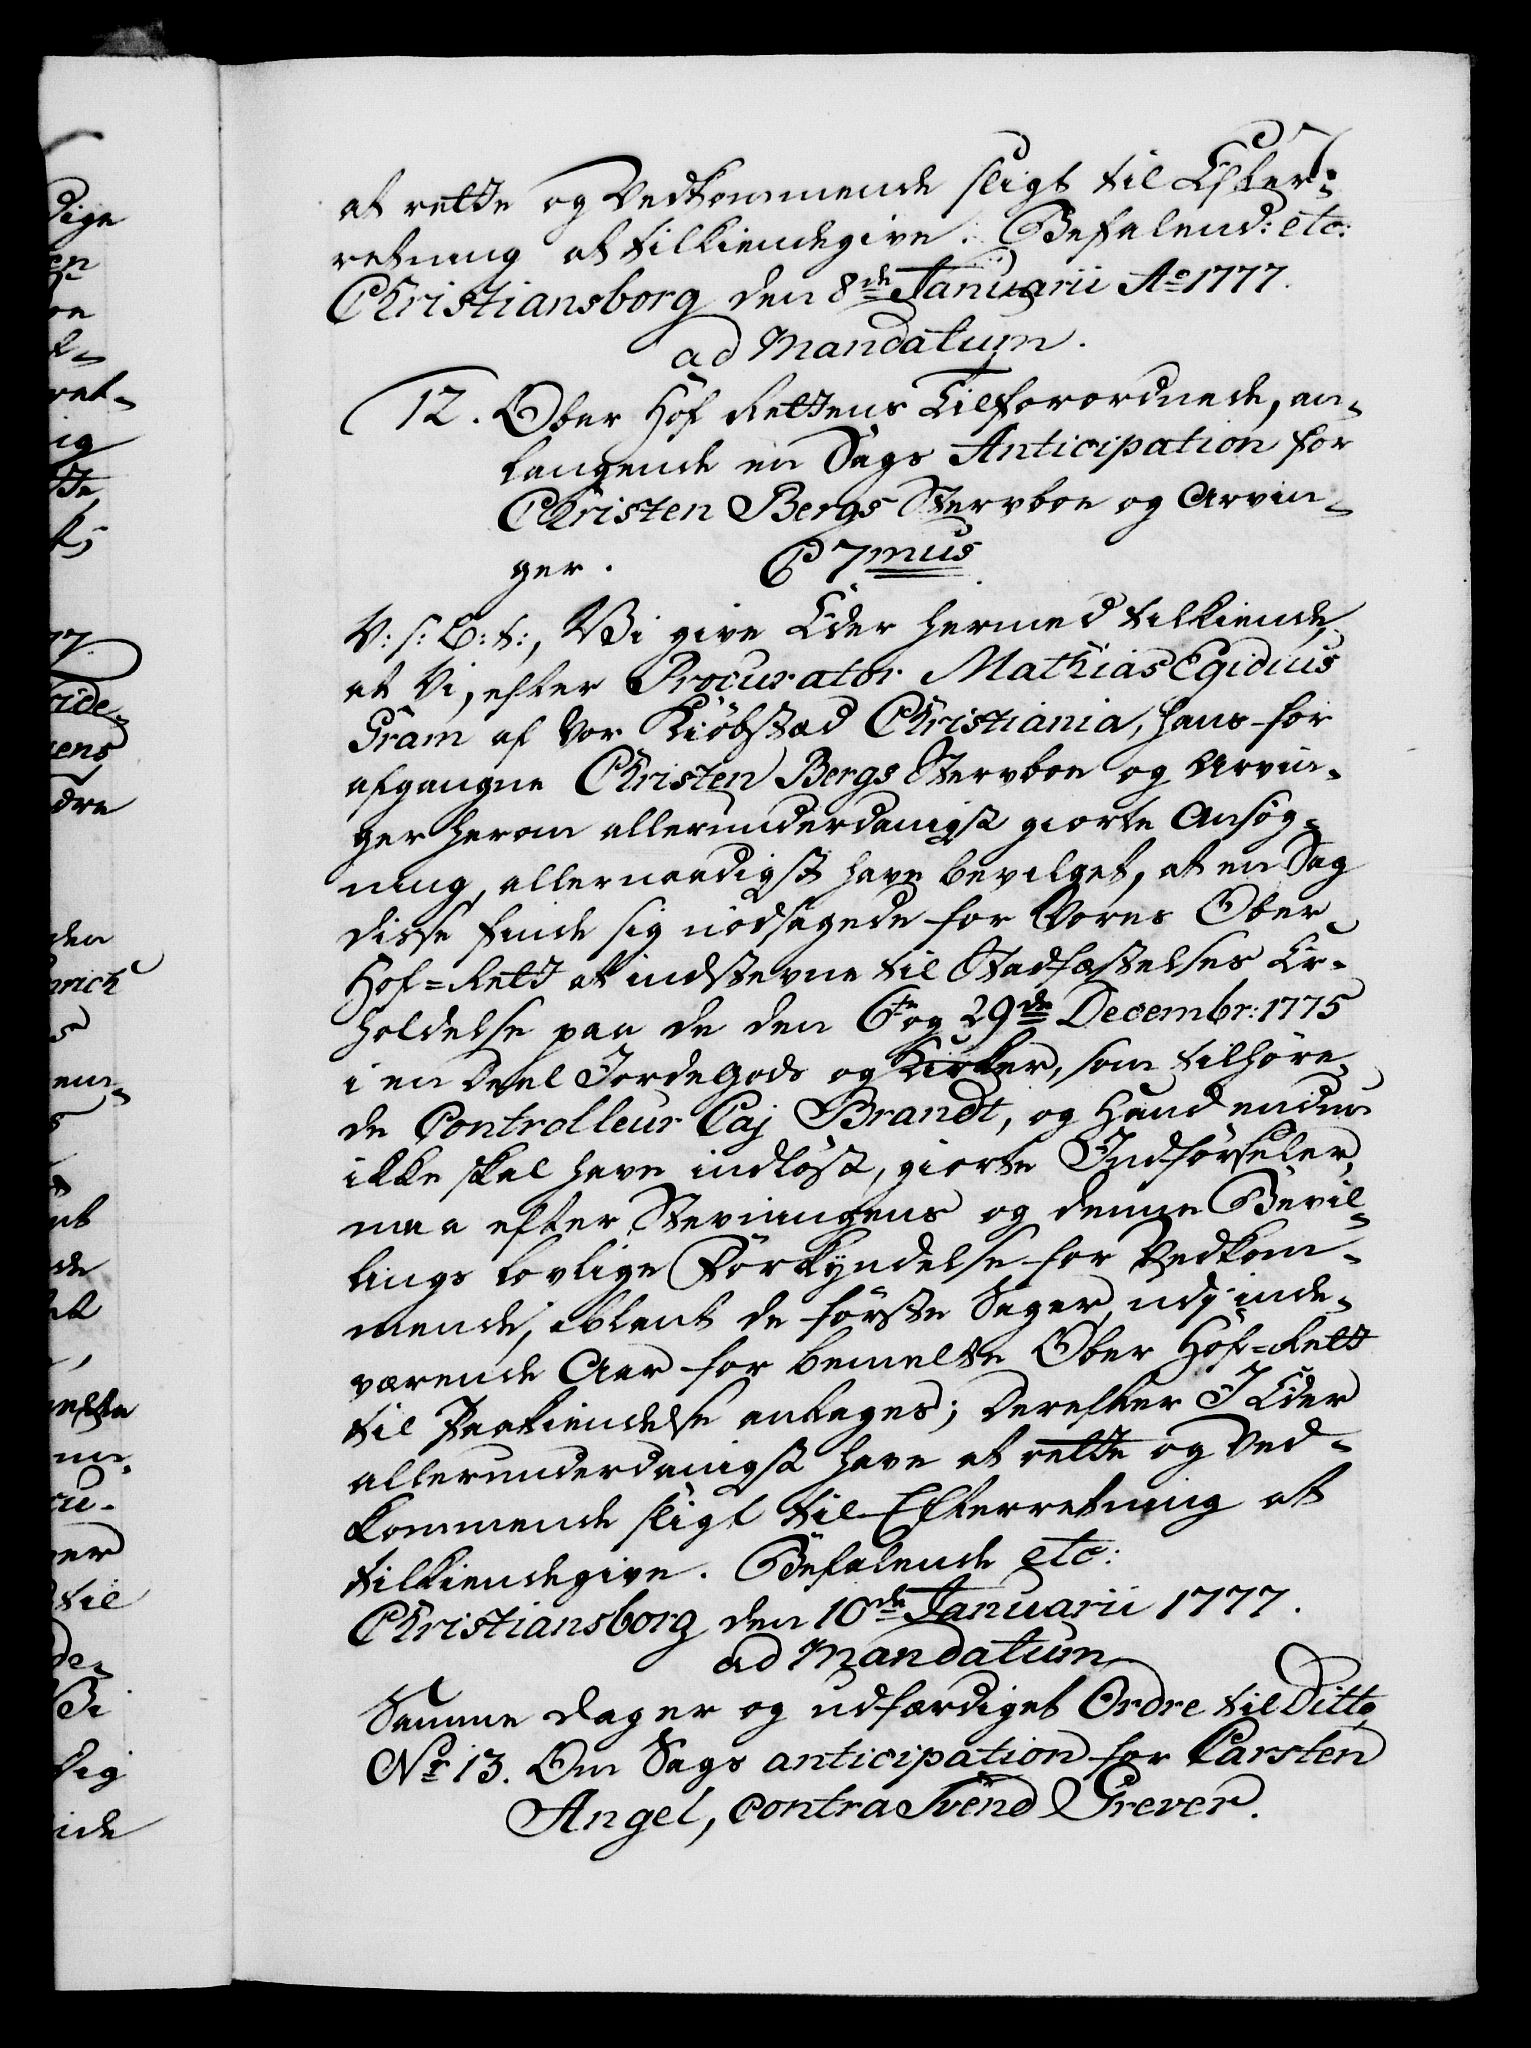 at rette og Vedkommende sligt til Efter-
retning at tilkiendegive. Befalend: etc:
Christiansborg den 8de Januarii Ao 1777.
ad Mandatum.
12. Ober Hof Rettens Tilforordnede, an-
langende en Sags Anticipation for
Christen Bergs Sterboe og Arvin-
ger. C 7mus
V: s: G: t:, Wi give Eder hermed tilkiende,
at Vi, efter Procurator Mathias Egidius
Gram af Vor Kiöbstæd Christiania, hans for
afgangne Christen Bergs Sterboe og Arvin-
ger herom allerunderdanigst giorte Ansög-
ning, allernaadigst have bevilget, at en Sag
disse finde sig nödsagede for Vores Ober
Hof-Rett at indstevne til Stadfæstelses Er-
holdelse paa de den 6te og 29de Decembr: 1775
i en Deel Jordegods og Kirker, som tilhöre-
de Controlleur Caj Brandt, og hand endnu
ikke skal have indlöst, giorte Indförseler,
maa efter Stevningens og denne Bevil-
lings lovlige Forkyndelse for Vedkom-
mende, iblant de förste Sager, udj inde-
værende Aar for bemelte Ober Hof-Rett
til Paakiendelse antages; Derefter I Eder
allerunderdanigst have at rette og Ved-
kommende sligt til Efterretning at
tilkiendegive. Befalende etc:
Christiansborg den 10de Januarii 1777.
ad Mandatum
Samme dag er og udfærdiget Ordre til Ditto
No 13. Om Sags anticipation for Carsten
Angel, contra Svend Grever.